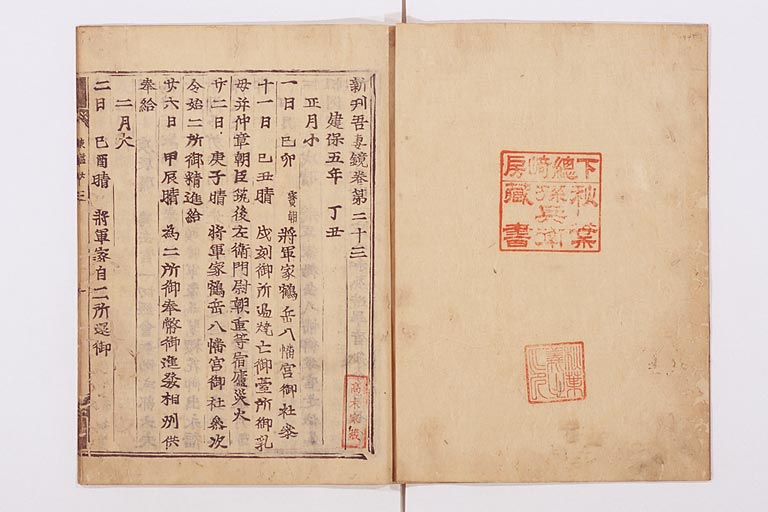 下總
秋葉
崎孫兵衛
房藏書
新刋吾妻鏡卷第二十三
建保五年 丁丑
正月小
一日 己卯 實朝 將軍家鶴岳八幡宮御社參
十一日 己丑晴 戌刻御所邊燒亡御臺所御乳
母并仲章朝臣筑後左衛門尉朝重等宿廬災火
廿二日 庚子晴 將軍家鶴岳八幡宮御社參次
令始二所御精進給
廿六日 甲辰晴 為二所御奉幣御進發相州供
奉給
二月大
二日 己酉晴 將軍家自二所還御
高木家藏